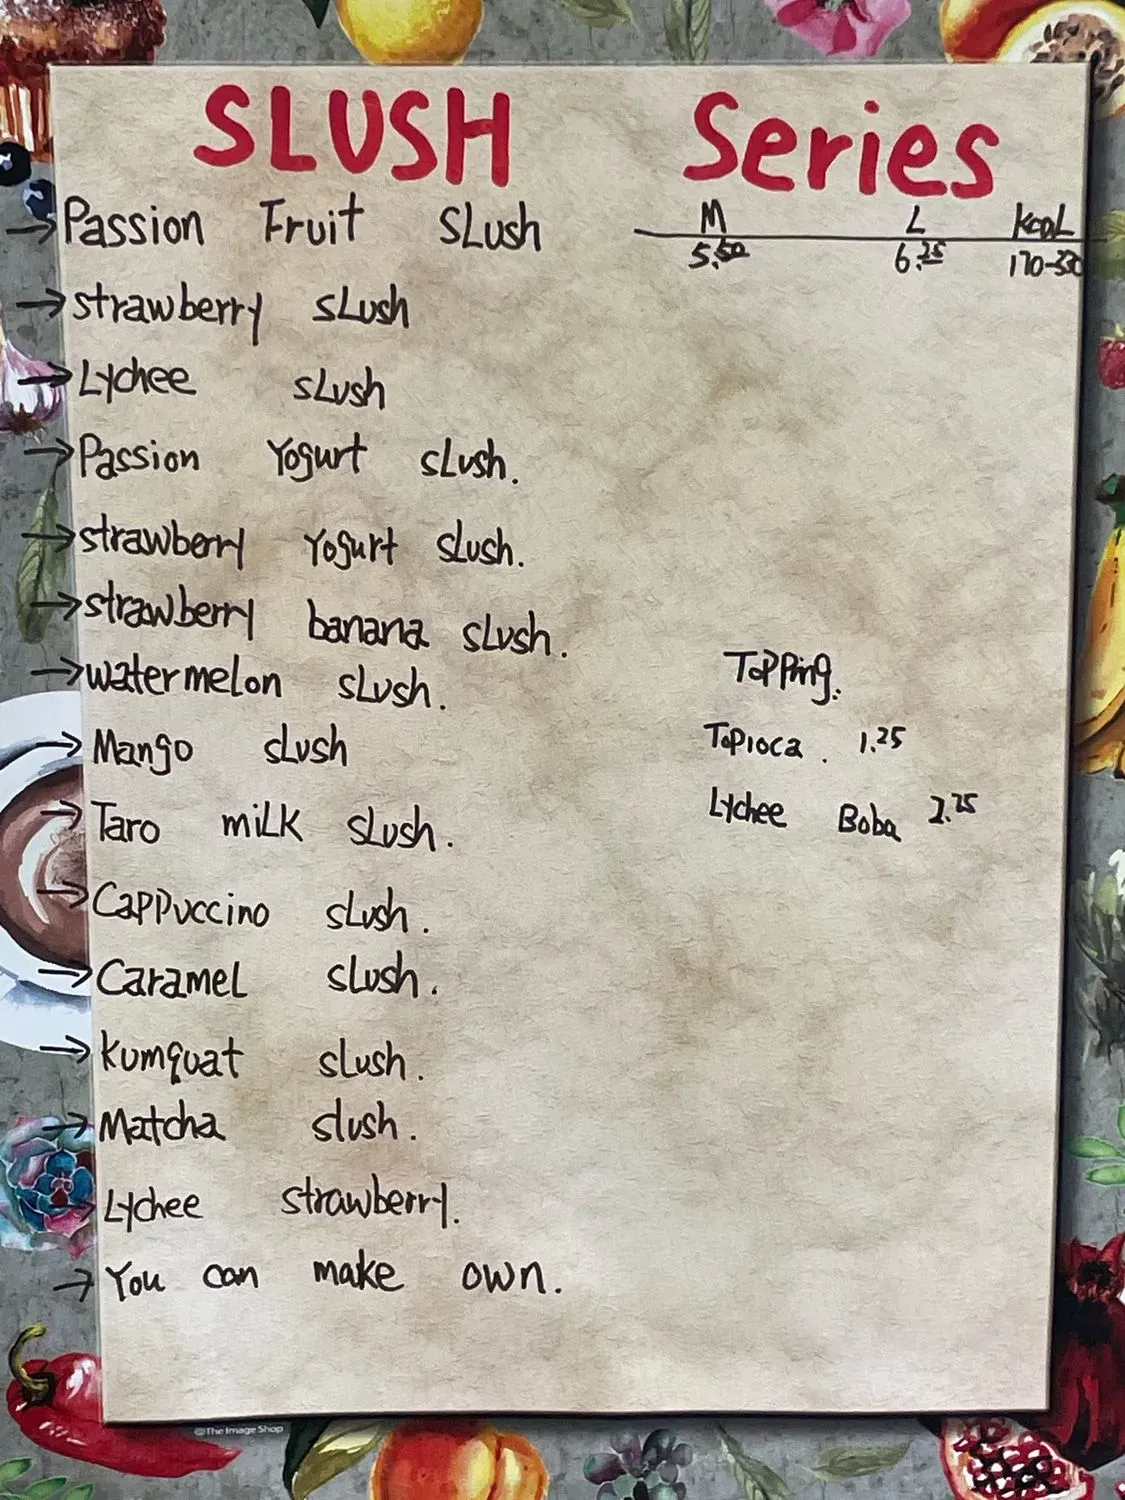 SLUSH Series
→Passion Fruit SLush
M L KcaL
5.50 6.25 170-330
→strawberry sLush
→Lychee sLush
→Passion Yogurt sLush.
→strawberry Yogurt sLush.
→strawberry banana sLush.
→watermelon sLush.
→Mango sLush
→Taro miLK sLush.
→Cappuccino sLush.
→CarameL sLush.
→kumquat sLush.
→Matcha slush.
→Lychee strawberry.
→You can make own.
Topping:
Tapioca. 1.25
Lychee Boba
©The Image Shop